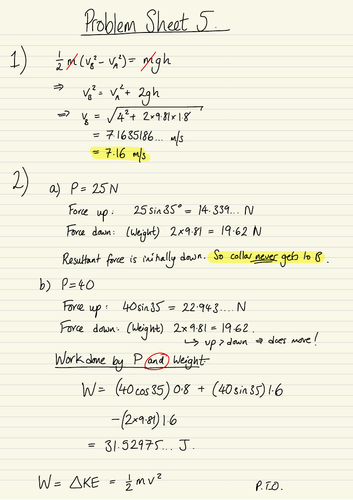 Problem Sheet 5.
1) ½ m (v_B² − v_A²) = mgh
⇒ v_B² = v_A² + 2gh
⇒ v_B = √(4² + 2×9.81×1.8)
= 7.1635186... m/s
= 7.16 m/s
2) a) P = 25 N
Force up: 25 sin 35° = 14.339... N
Force down: (Weight) 2×9.81 = 19.62 N
Resultant force is initially down. So collar never gets to B.
b) P=40
Force up: 40 sin 35 = 22.943.... N
Force down: (Weight) 2×9.81 = 19.62.
↳ up > down ⇒ does move!
Work done by P and Weight
W = (40 cos 35) 0.8 + (40 sin 35) 1.6
−(2×9.81) 1.6
= 31.52975... J.
W = ΔKE = ½ mv²
P.T.O.